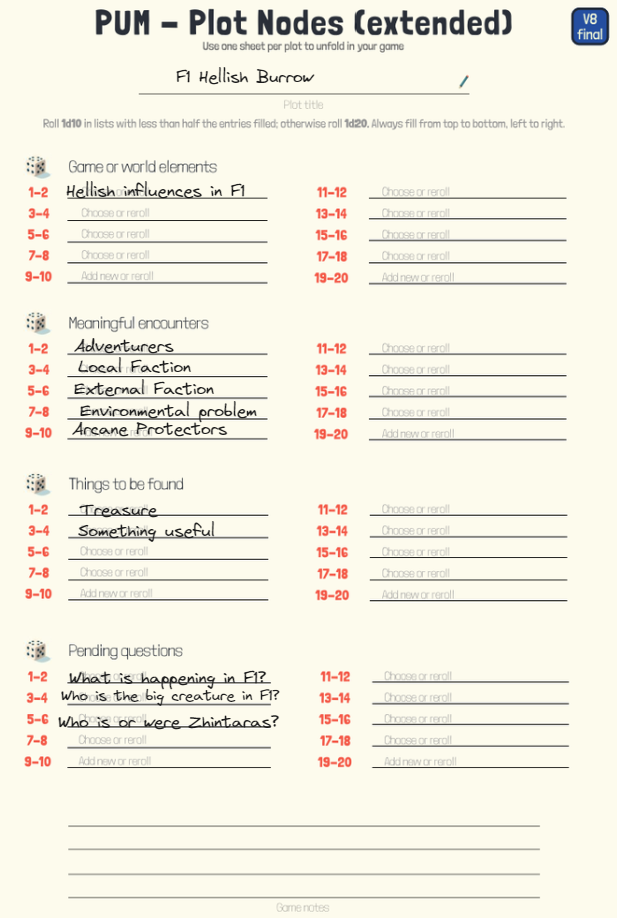 PUM – Plot Nodes (extended)
V8
final
Use one sheet per plot to unfold in your game
F1 Hellish Burrow
Plot title
Roll 1d10 in lists with less than half the entries filled; otherwise roll 1d20. Always fill from top to bottom, left to right.
Game or world elements
1-2 Hellish influences in F1
3-4 Choose or reroll
5-6 Choose or reroll
7-8 Choose or reroll
9-10 Add new or reroll
11-12 Choose or reroll
13-14 Choose or reroll
15-16 Choose or reroll
17-18 Choose or reroll
19-20 Add new or reroll
Meaningful encounters
1-2 Adventurers
3-4 Local Faction
5-6 External Faction
7-8 Environmental problem
9-10 Arcane Protectors
11-12 Choose or reroll
13-14 Choose or reroll
15-16 Choose or reroll
17-18 Choose or reroll
19-20 Add new or reroll
Things to be found
1-2 Treasure
3-4 Something useful
5-6 Choose or reroll
7-8 Choose or reroll
9-10 Add new or reroll
11-12 Choose or reroll
13-14 Choose or reroll
15-16 Choose or reroll
17-18 Choose or reroll
19-20 Add new or reroll
Pending questions
1-2 What is happening in F1?
3-4 Who is the big creature in F1?
5-6 Who is or were Zhintaras?
7-8 Choose or reroll
9-10 Add new or reroll
11-12 Choose or reroll
13-14 Choose or reroll
15-16 Choose or reroll
17-18 Choose or reroll
19-20 Add new or reroll
Game notes